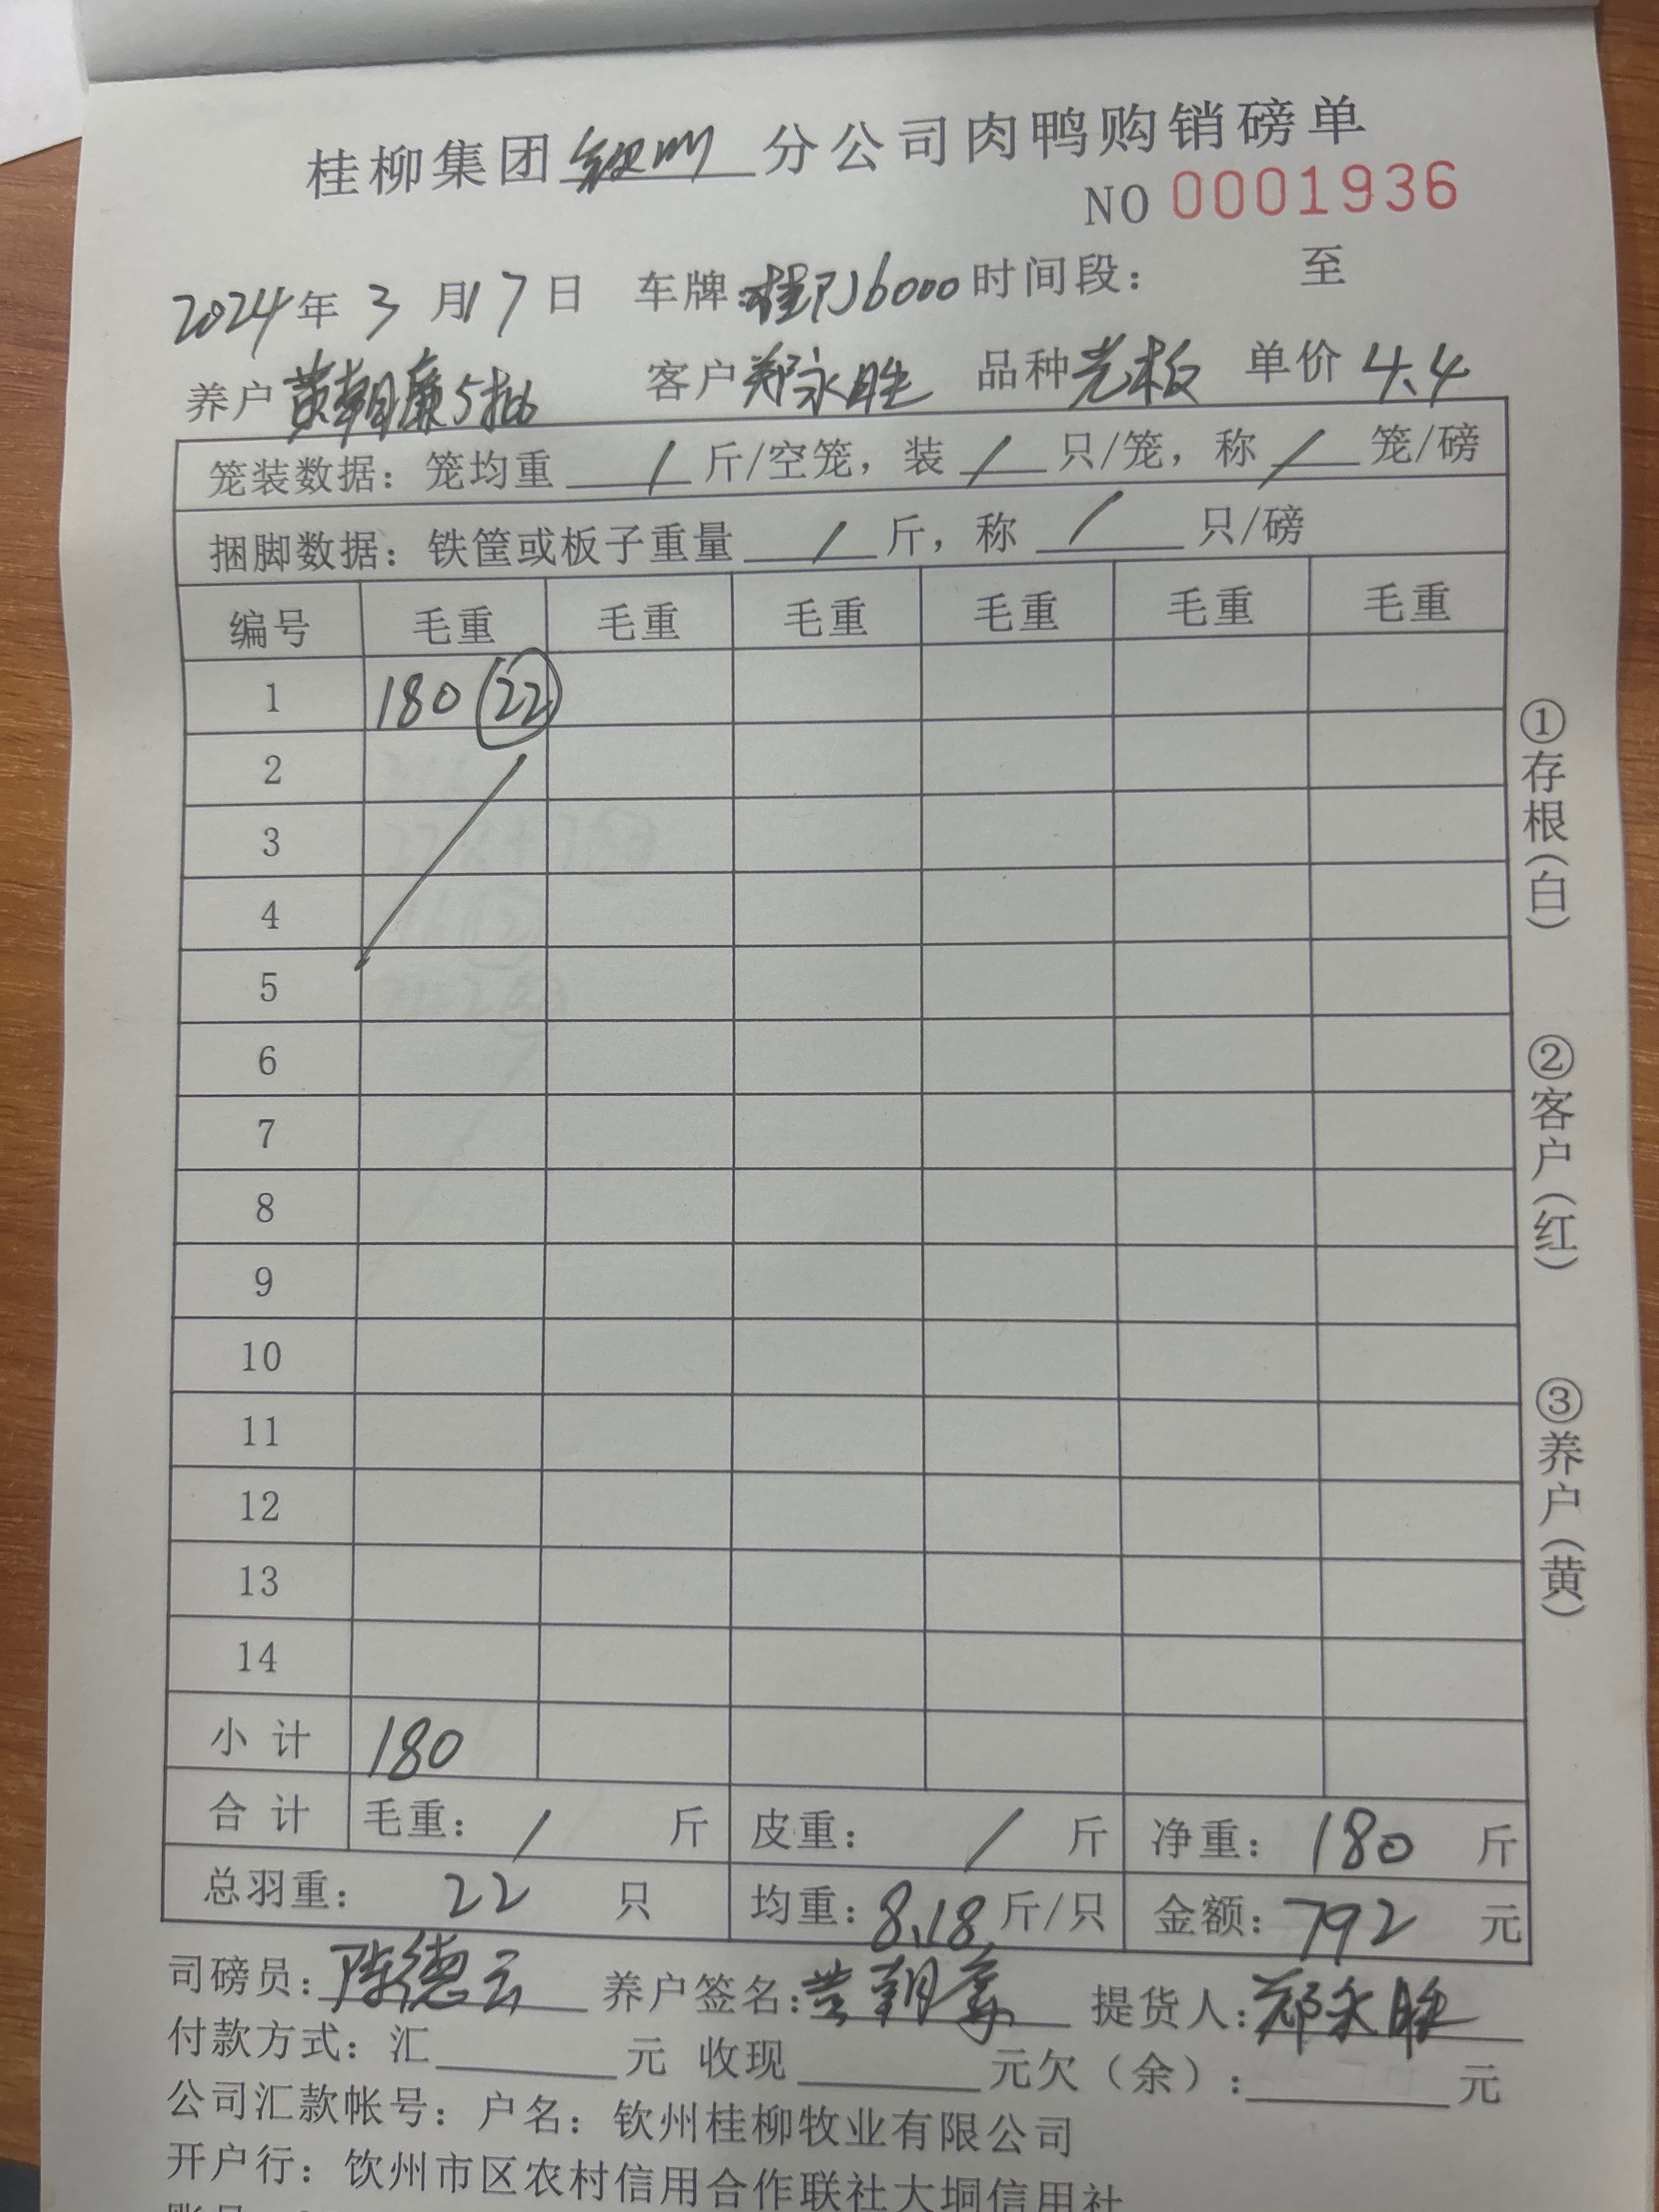 桂柳集团钦州分公司肉鸭购销磅单
NO 0001936
2024年3月17日 车牌:桂 J6000 时间段: 至
养户 黄朝廉5批 客户 郑永胜 品种 光板 单价 4.4
笼装数据: 笼均重 / 斤/空笼, 装 / 只/笼, 称 / 笼/磅
捆脚数据: 铁筐或板子重量 / 斤, 称 / 只/磅
编号 毛重 毛重 毛重 毛重 毛重 毛重
1 180 (22)
2
3
4
5
6
7
8
9
10
11
12
13
14
小计 180
合计 毛重: / 斤 皮重: / 斤 净重: 180 斤
总羽重: 22 只 均重: 8.18 斤/只 金额: 792 元
司磅员: 陈德云 养户签名: 黄朝廉 提货人: 郑永胜
付款方式: 汇 元 收现 元欠（余）: 元
公司汇款帐号: 户名: 钦州桂柳牧业有限公司
开户行: 钦州市区农村信用合作联社大垌信用社
①存根（白）
②客户（红）
③养户（黄）